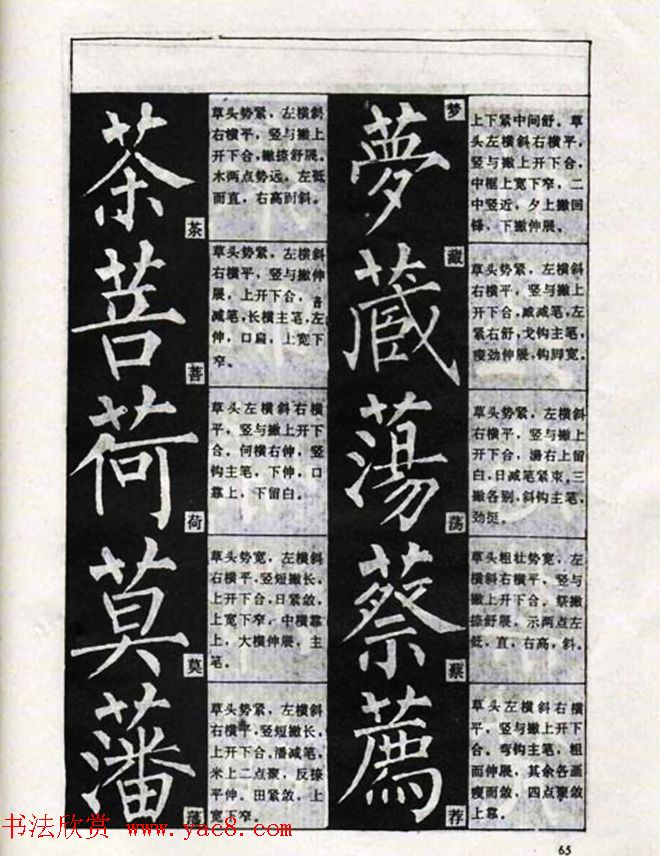 茶
茶
草头势紧，左横斜
右横平，竖与撇上
开下合，撇捺舒展。
木两点势远，左低
而直，右高而斜。
菩
菩
草头势紧，左横斜
右横平，竖与撇伸
展，上开下合，咅
减笔，长横主笔，左
伸，口扁，上宽下
窄。
荷
荷
草头左横斜右横
平，竖与撇上开下
合。何横右伸，竖
钩主笔，下伸，口
靠上，下留白。
莫
莫
草头势宽，左横斜
右横平，竖短撇长，
上开下合，日紧敛，
上宽下窄，中横靠
上，大横伸展，主
笔。
藩
藩
草头势紧，左横斜
右横平，竖短撇长，
上开下合，潘减笔，
米上二点聚，反捺
平伸。田紧敛，上
宽下窄。
夢
梦
上下紧中间舒。草
头左横斜右横平，
竖与撇上开下合，
中框上宽下窄，二
中竖近，夕上撇回
锋，下撇伸展。
藏
藏
草头势紧，左横斜
右横平，竖与撇上
开下合，臧减笔，左
紧右舒，戈钩主笔，
瘦劲伸展，钩脚宽。
蕩
荡
草头势紧，左横斜
右横平，竖与撇上
开下合，湯右上留
白，日减笔紧束，三
撇各别，斜钩主笔，
劲挺。
蔡
蔡
草头粗壮势宽，左
横斜右横平，竖与
撇上开下合。祭撇
捺舒展，示两点左
低，直，右高，斜。
薦
荐
草头左横斜右横
平，竖与撇上开下
合。弯钩主笔，粗
而伸展，其余各画
瘦而敛，四点聚敛
上靠。
书法欣赏 www.yac8.com
65